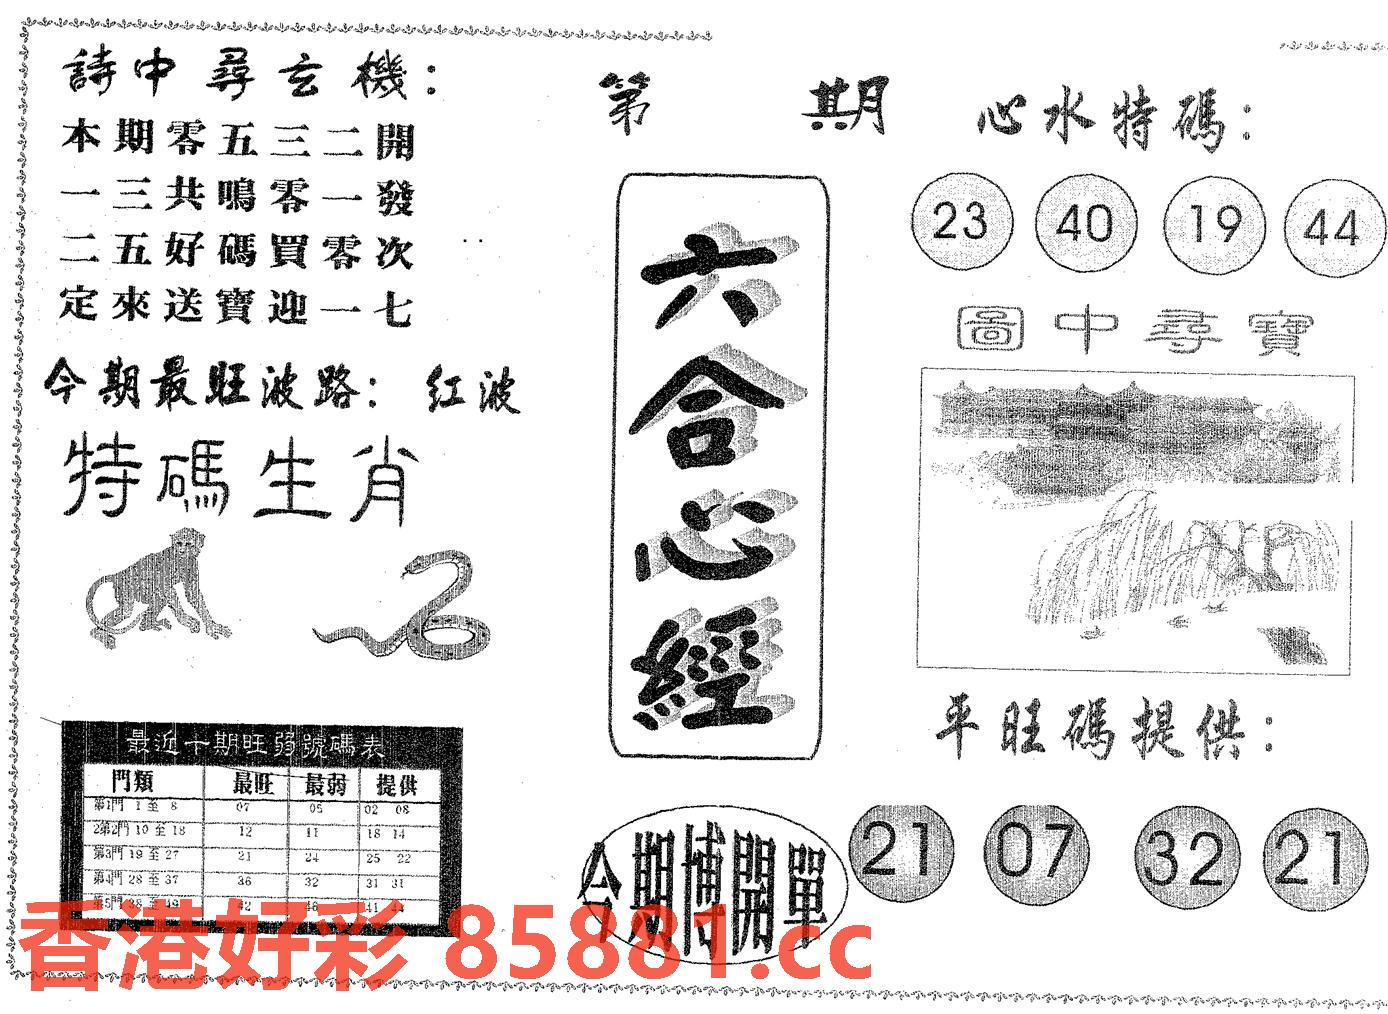 詩中尋玄機：
本期零五三二開
一三共鳴零一發
二五好碼買零次
定來送寶迎一七
今期最旺波路：红波
特碼生肖
最近十期旺弱號碼表
門類 最旺 最弱 提供
第1門 1 至 8 07 05 02 08
2第2門 10 至 18 12 11 18 14
第3門 19 至 27 21 24 25 22
第4門 28 至 37 36 32 31 31
第5門 38 至 49 42 46 41 44
第 期
六合心經
今期博開單
心水特碼：
23 40 19 44
圖中尋寶
平旺碼提供：
21 07 32 21
香港好彩 85881.cc